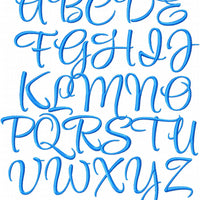 ABCDE
FGHIJ
KLMNO
PQRSTU
VWXYZ